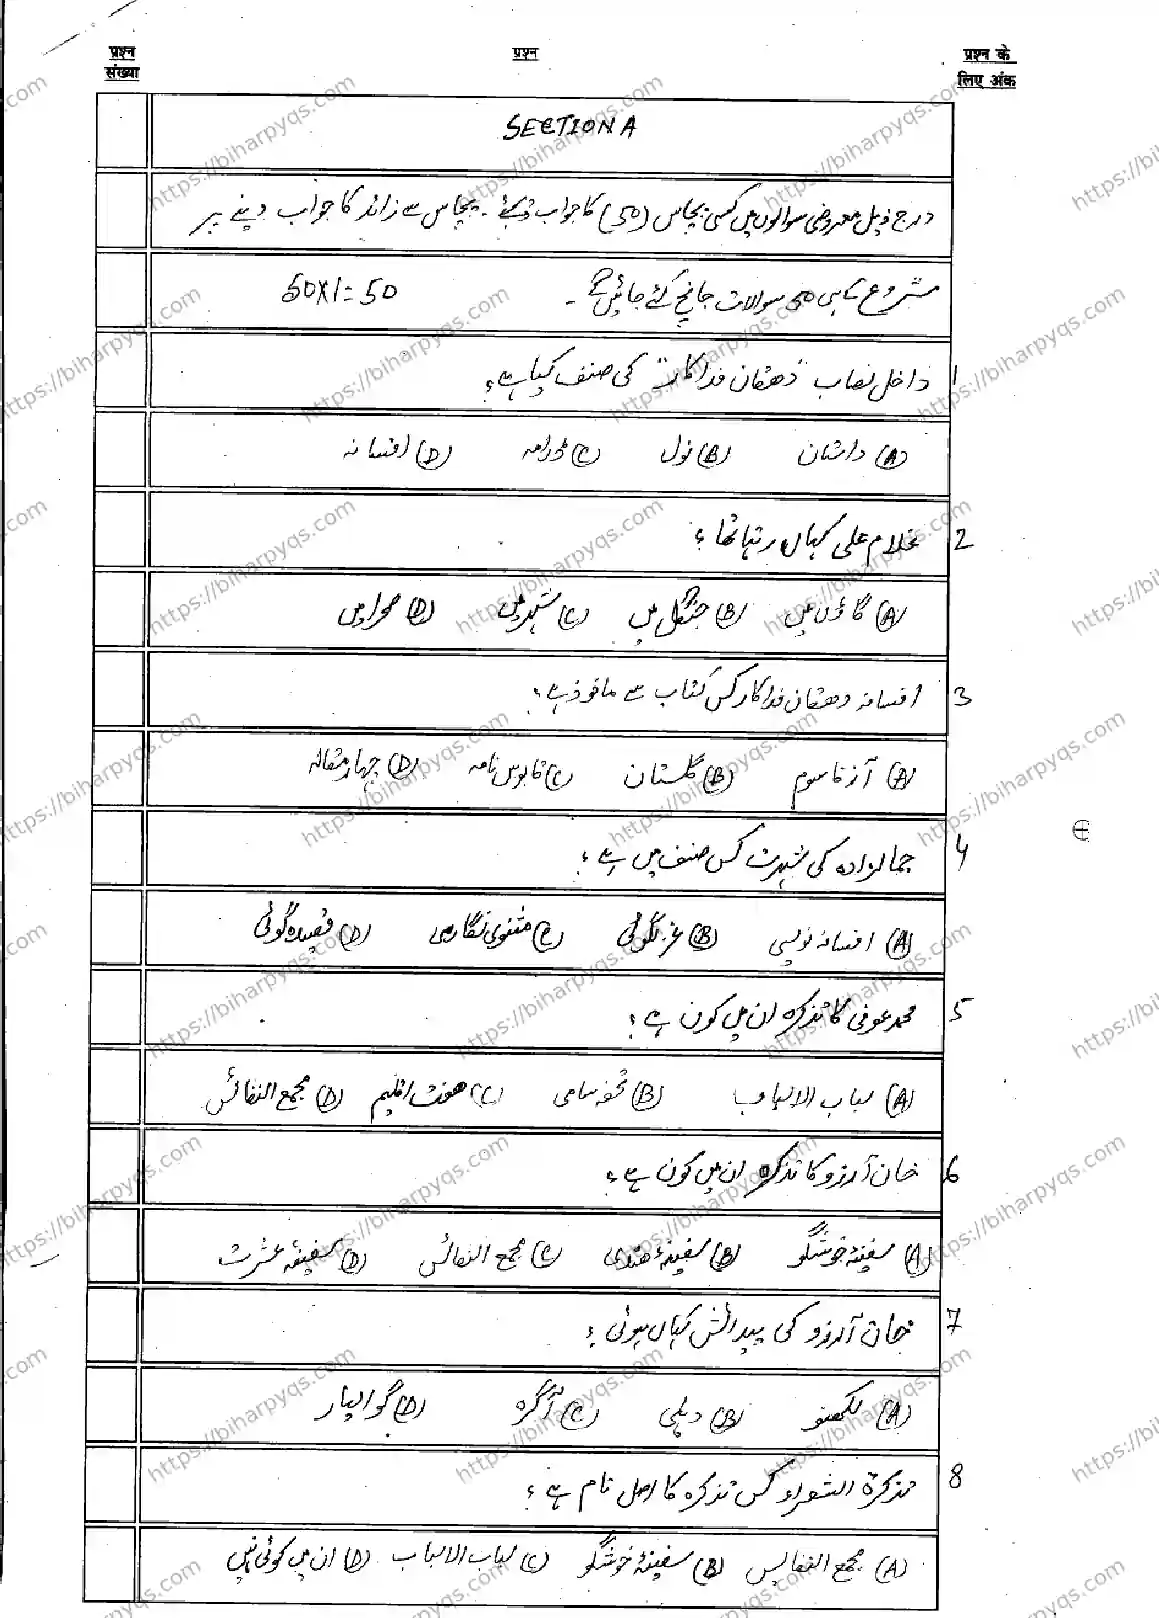 प्रश्न संख्या
प्रश्न
प्रश्न के लिए अंक
SECTION A
درج ذیل معروضی سوالوں میں کسی پچاس (50) کا جواب دیجئے۔ پچاس سے زائد کا جواب دینے پر
شروع کا ہی 50 سوالات جانچ کئے جائیں گے۔ 50x1=50
1 داخل نصاب "دهقان فداکار" کی صنف کیا ہے؟
(A) داستان (B) نول (C) ڈرامہ (D) افسانہ
2 غلام علی کہاں رہتا تھا؟
(A) گاؤں میں (B) جنگل میں (C) شہر میں (D) صحرا میں
3 افسانہ دهقان فداکار کس کتاب سے ماخوذ ہے؟
(A) آزفا سوم (B) گلستان (C) قابوس نامہ (D) چہار مقالہ
4 جمالزادہ کی شہرت کس صنف میں ہے؟
(A) افسانہ نویسی (B) غزلگوئی (C) مثنوی نگاری (D) قصیدہ گوئی
5 محمد عوفی کا تذکرہ ان میں کون ہے؟
(A) لباب الالباب (B) تحفہ سامی (C) هفت اقلیم (D) مجمع النفائس
6 خان آرزو کا تذکرہ ان میں کون ہے؟
(A) سفینۂ خوشگو (B) سفینۂ هندی (C) مجمع النفائس (D) سفینۂ عشرت
7 خان آرزو کی پیدائش کہاں ہوئی؟
(A) لکھنو (B) دہلی (C) آگرہ (D) گوالیار
8 تذکرۃ الشعراء کس تذکرہ کا اصل نام ہے؟
(A) مجمع النفایس (B) سفینۂ خوشگو (C) لباب الالباب (D) ان میں کوئی نہیں
https://biharpyqs.com